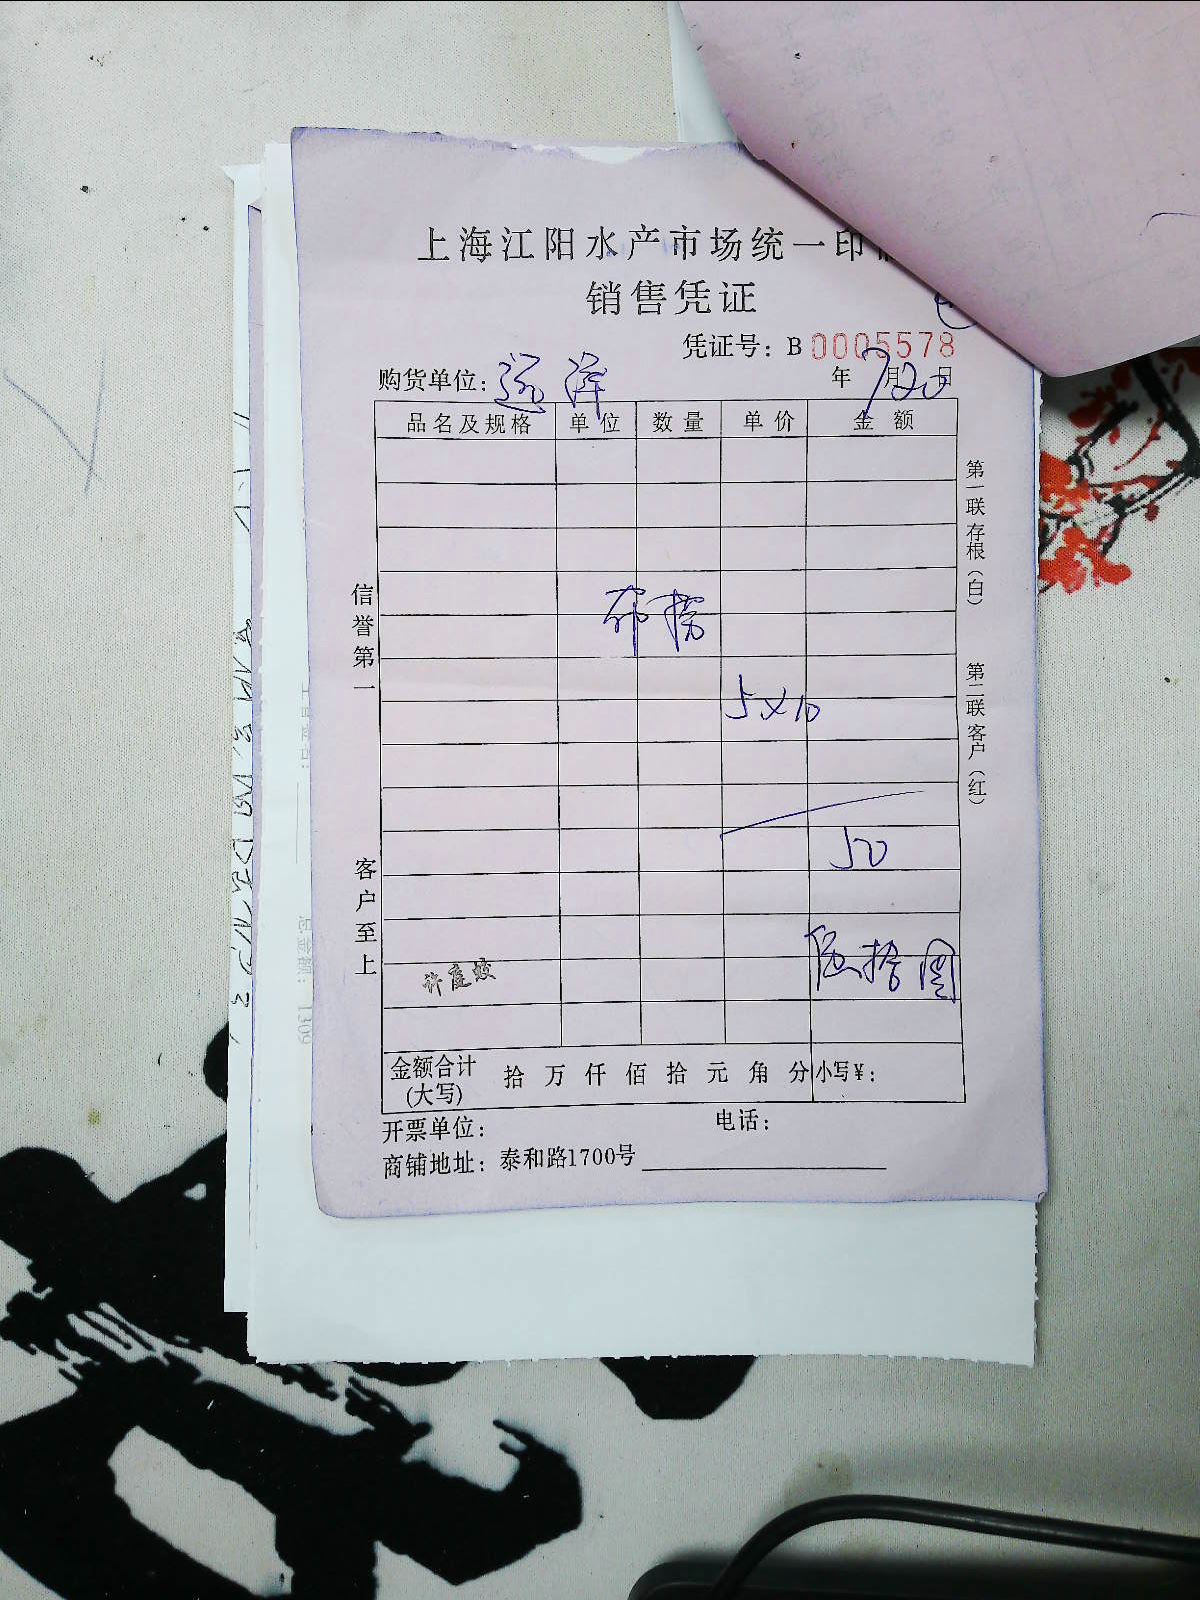 上海江阳水产市场统一印
销售凭证
凭证号：B 0005578
购货单位：远洋 年7月20日
品名及规格 单位 数量 单价 金额
5×10
50
伍拾圆
许庭蛟
金额合计(大写) 拾万仟佰拾元角分 小写¥：
开票单位： 电话：
商铺地址：泰和路1700号
信誉第一 客户至上
第一联存根（白） 第二联客户（红）